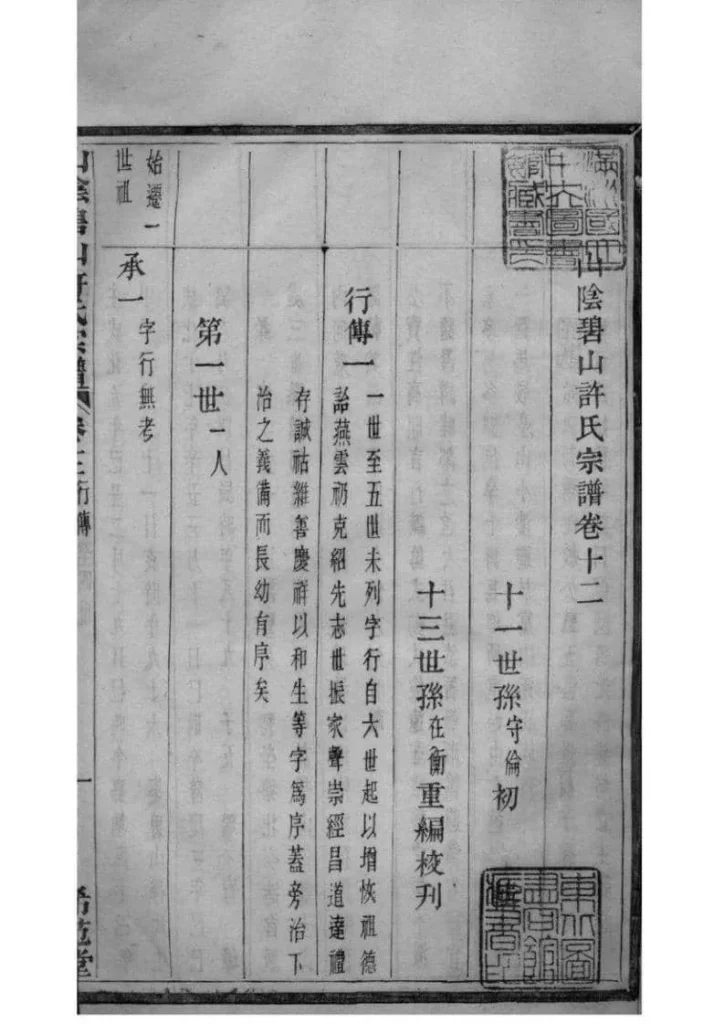 山陰碧山許氏宗譜卷十二
十一世孫守倫初
十三世孫在衡重編校刊
行傳一
一世至五世未列字行自六世起以增恢祖德
詒燕雲礽克紹先志世振家聲崇經昌道達禮
存誠祜維善慶祥以和生等字爲序蓋旁治下
治之義備而長幼有序矣
第一世一人
始遷一
世祖
承一字行無考
山陰碧山許氏宗譜 卷十二行傳 一 希范堂